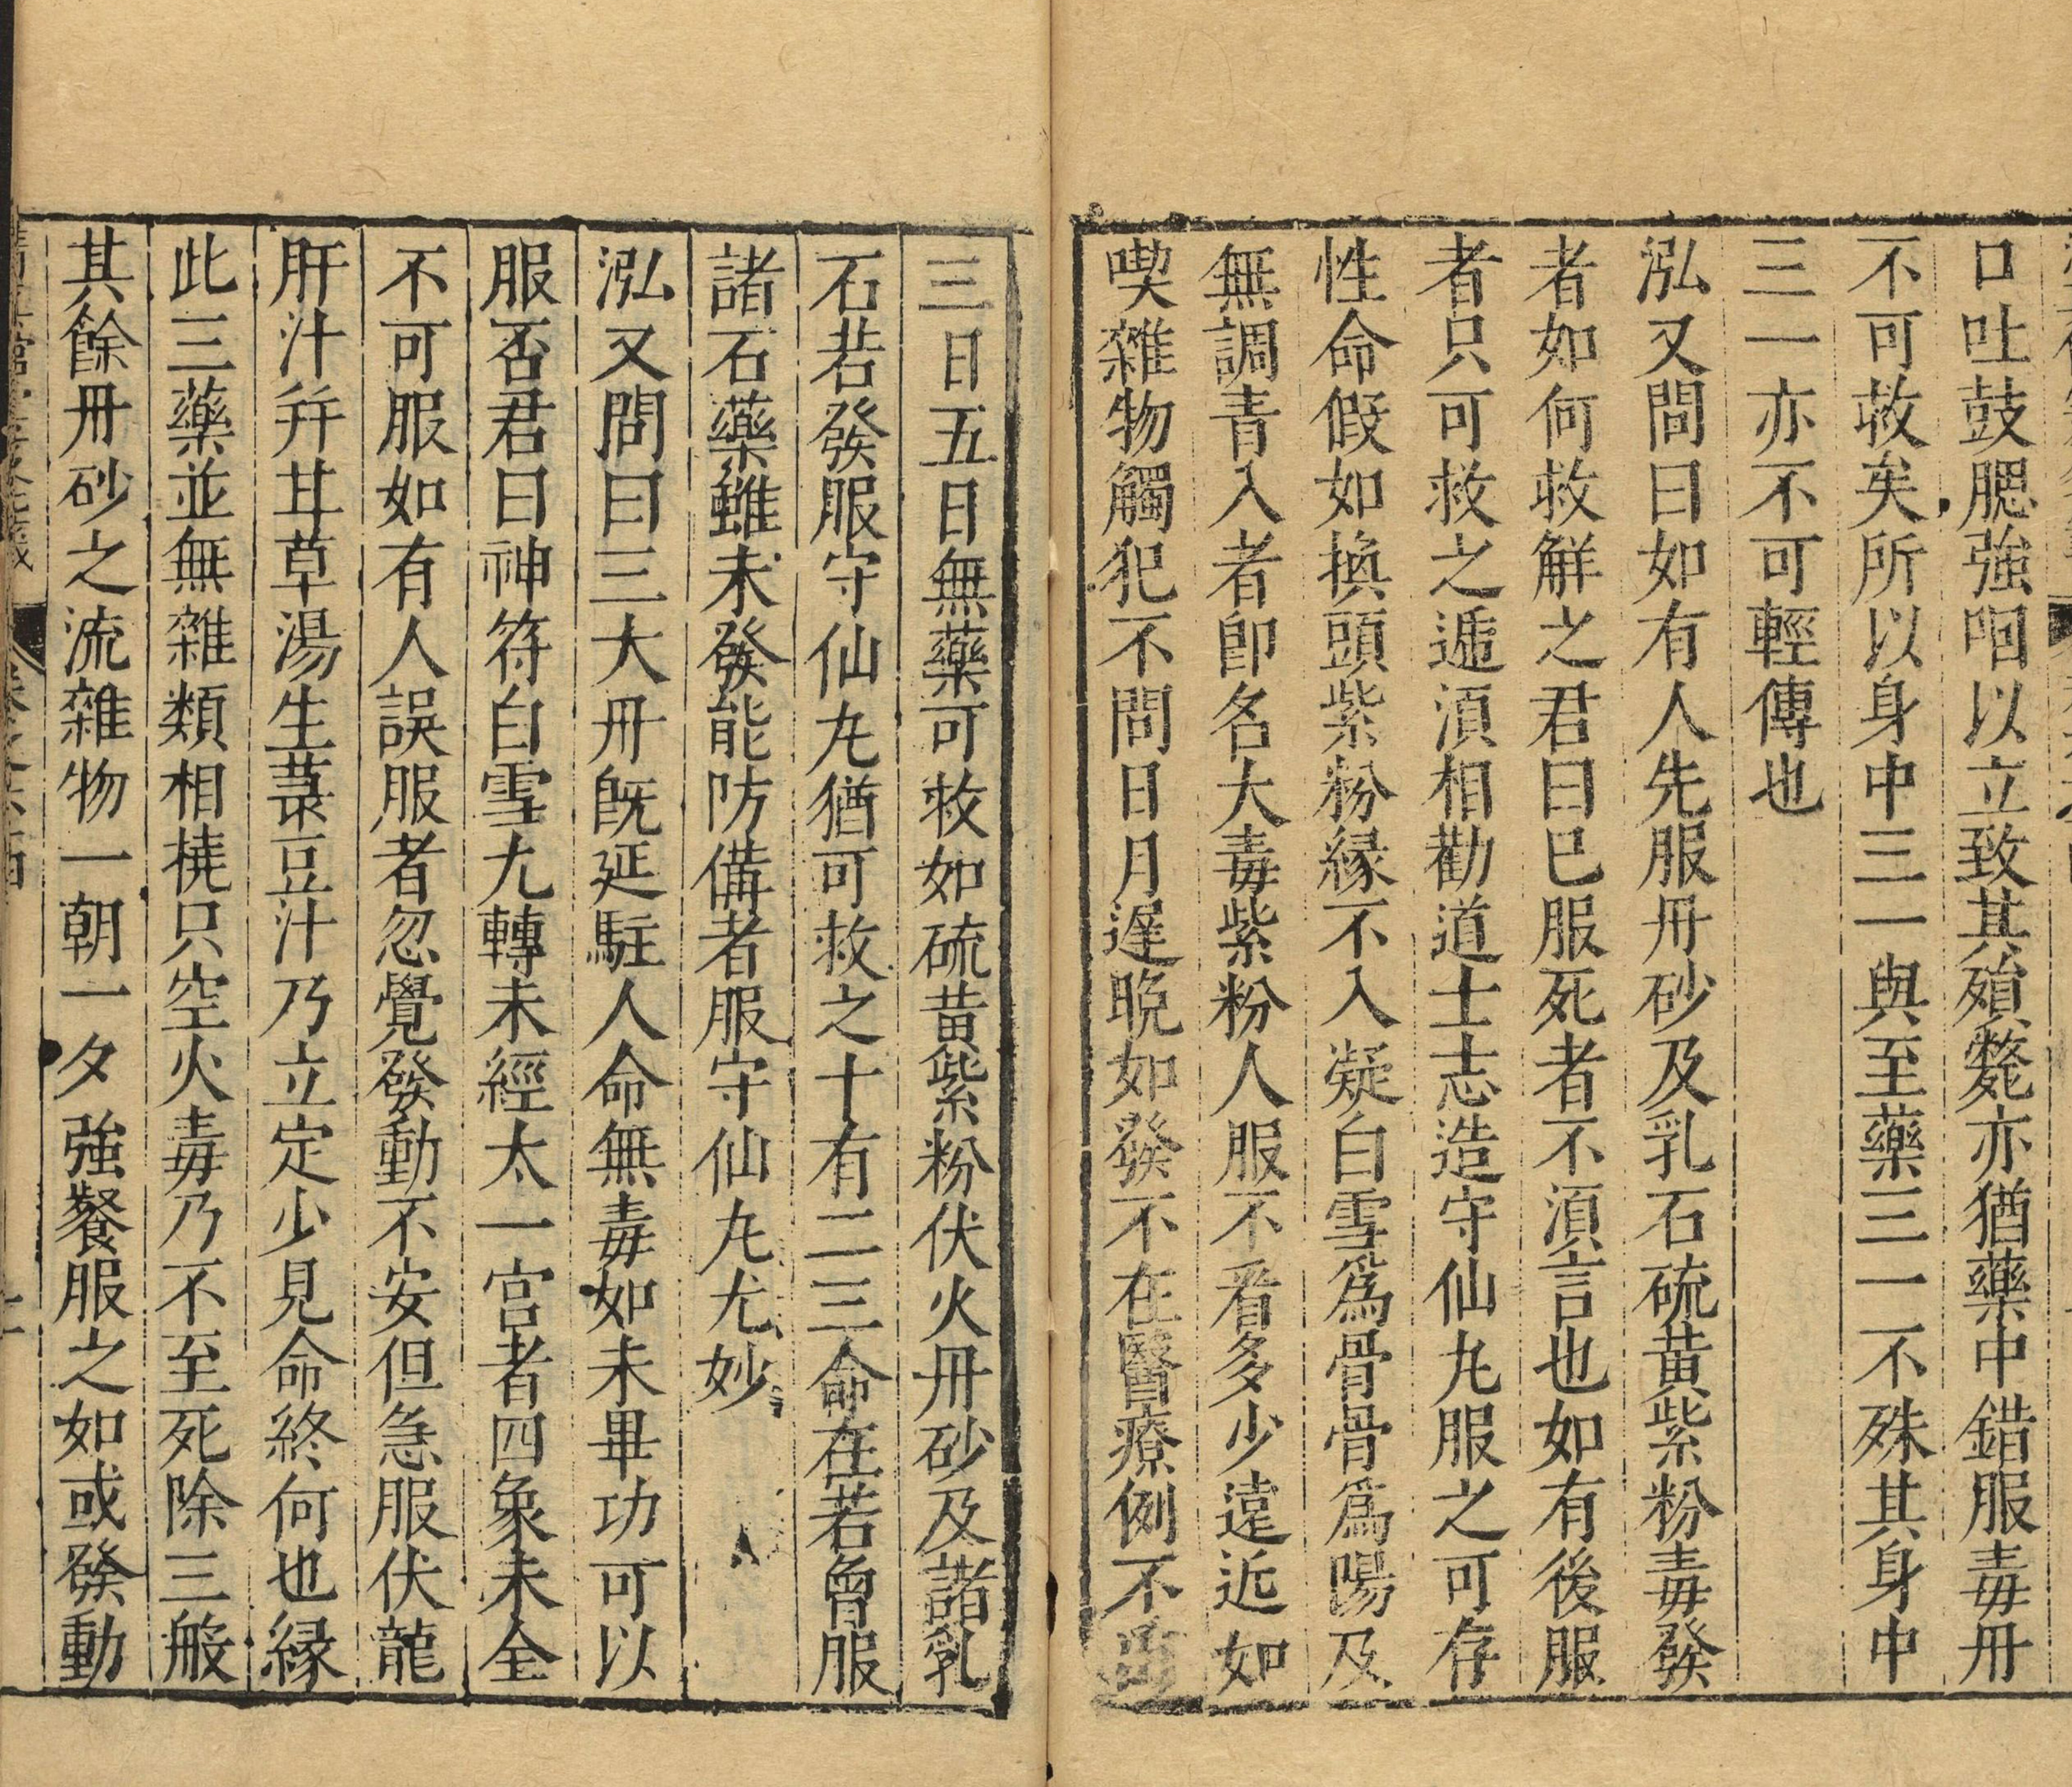 口吐鼓腮強咽以立致其殞斃亦猶藥中錯服毒丹
不可救矣所以身中三一與至藥三一不殊其身中
三一亦不可輕傳也
泓又問曰如有人先服丹砂及乳石硫黃紫粉毒發
者如何救解之君曰已服死者不湏言也如有後服
者只可救之遞湏相勸道士志造守仙丸服之可存
性命假如換頭紫粉縁不入凝白雪爲骨骨爲陽及
無調青入者卽名大毒紫粉人服不看多少遠近如
喫雜物觸犯不問日月遲晚如發不在醫療例不
三日五日無藥可救如硫黃紫粉伏火丹砂及諸乳
石若發服守仙丸猶可救之十有二三命在若曾服
諸石藥雖未發能防備者服守仙丸尤妙
泓又問曰三大丹旣延駐人命無毒如未畢功可以
服否君曰神符白雪九轉未經太一宮者四象未全
不可服如有人誤服者忽覺發動不安但急服伏龍
肝汁并甘草湯生菉豆汁乃立定少見命終何也縁
此三藥並無雜類相撓只空火毒乃不至死除三般
其餘丹砂之流雜物一朝一夕強餐服之如或發動